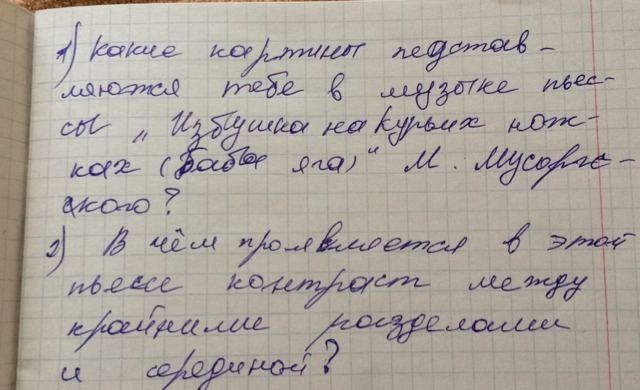 1) Какие картины педстав-
ляются тебе в музыке пьес-
сы „Избушка на курьих нож-
ках (Баба яга)" М. Мусорг-
ского?
2) В чём проявляется в этой
пьесе контраст между
крайними разделами
и серединой?